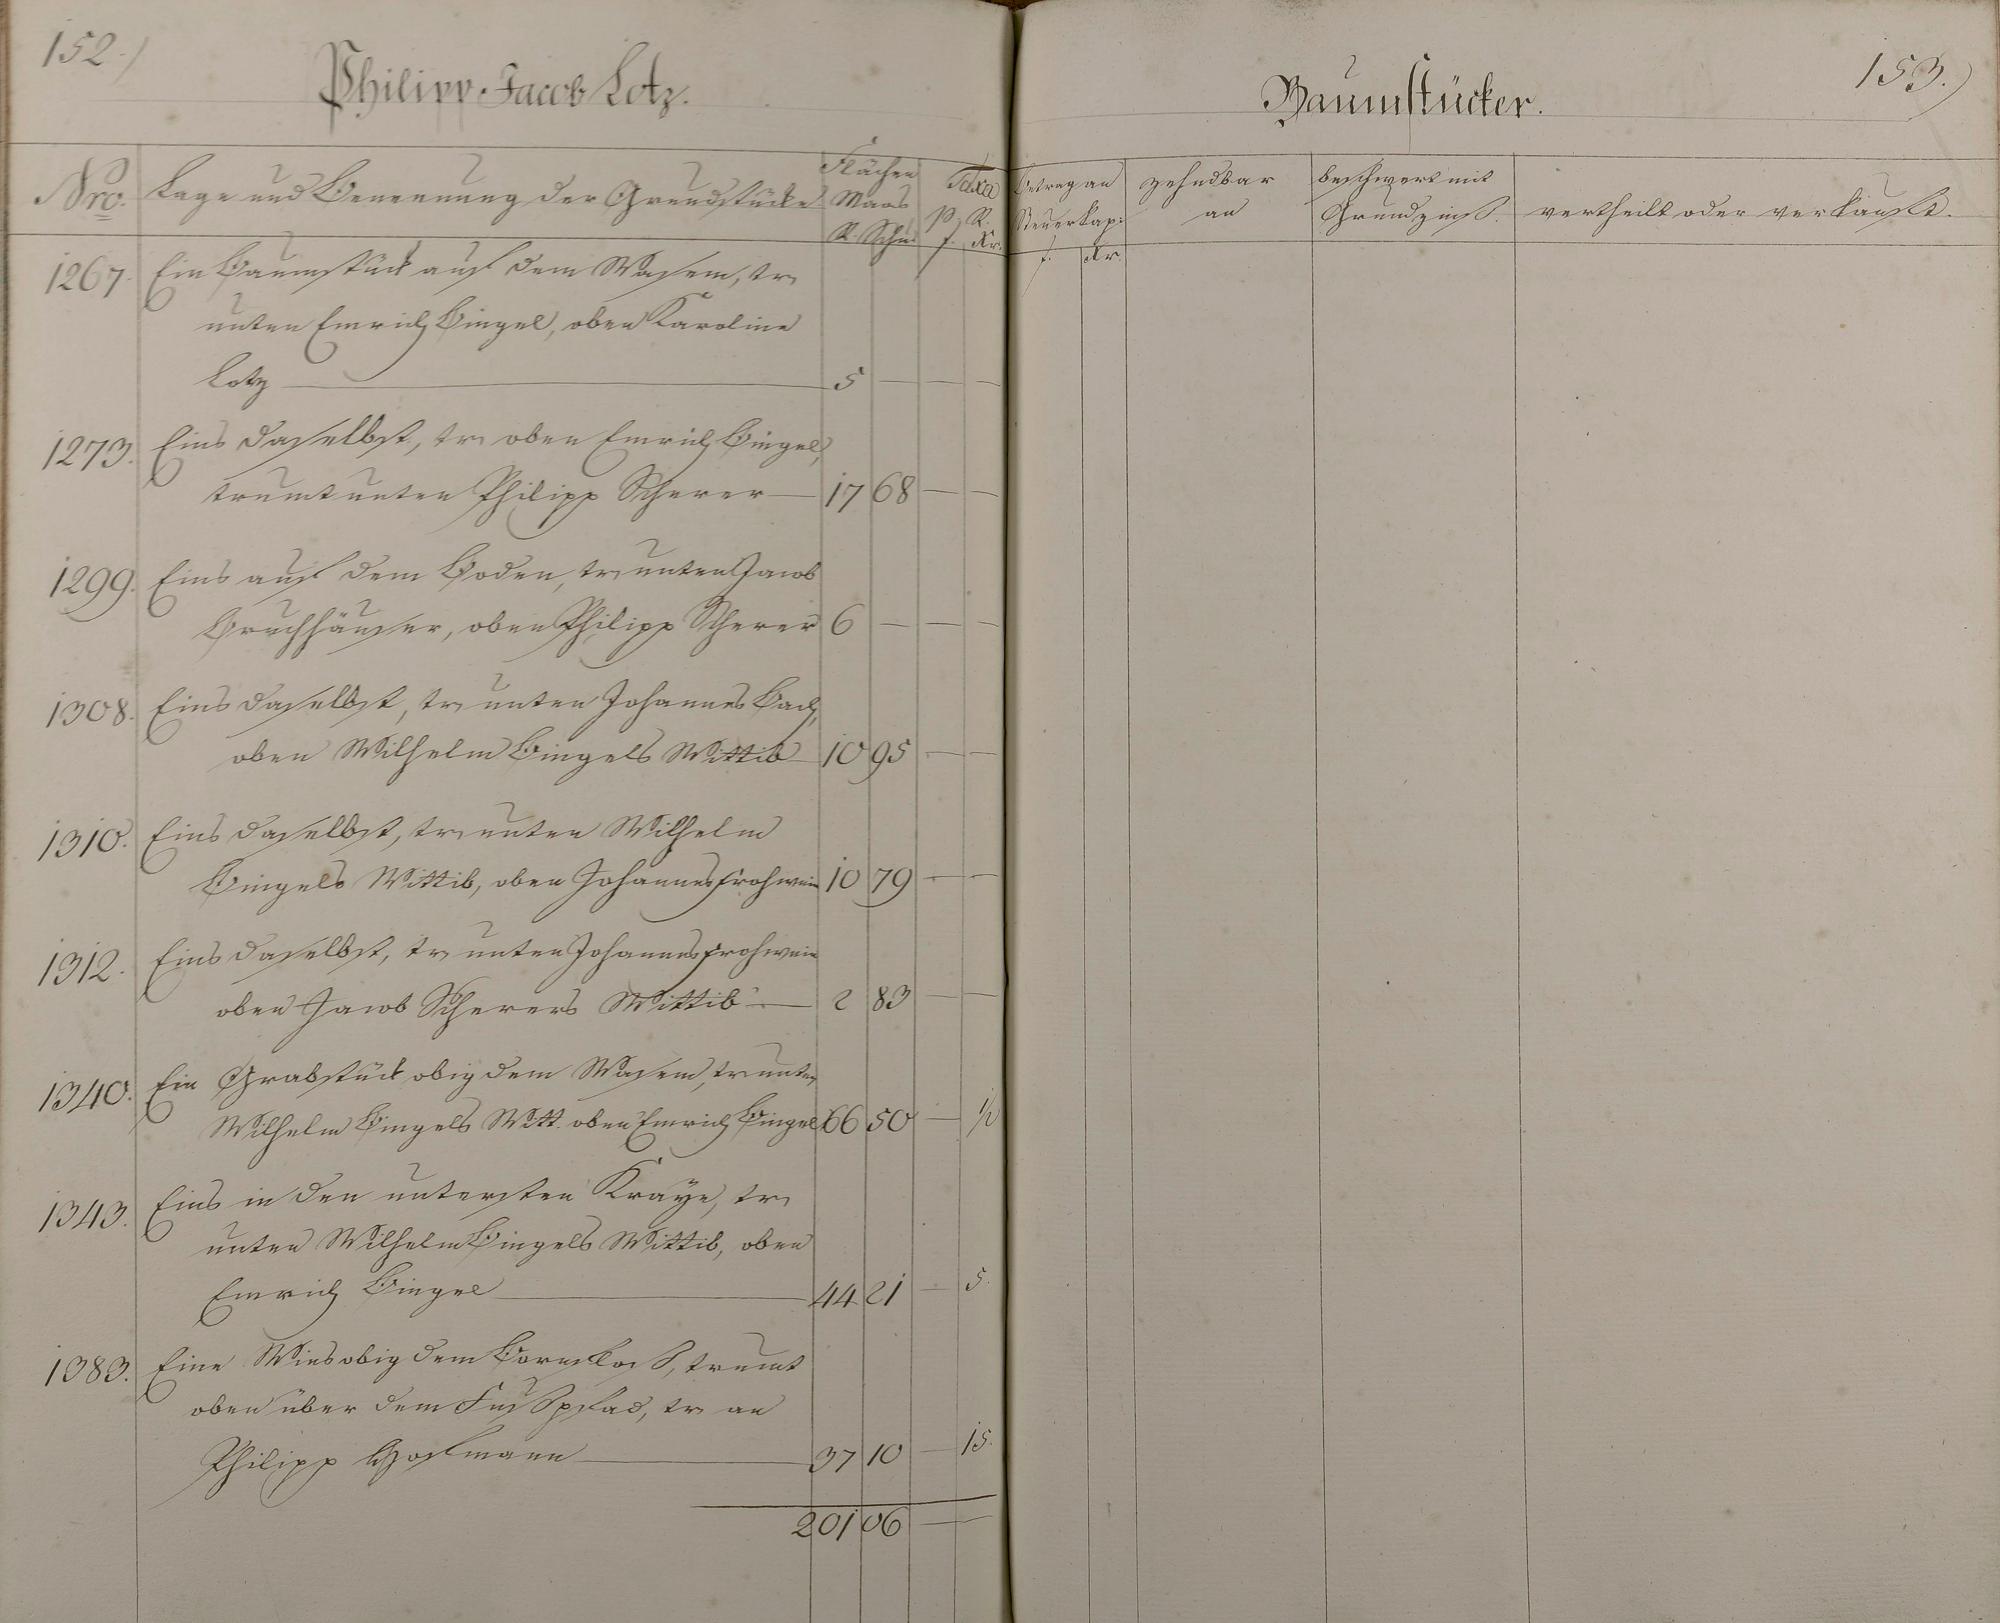 152.)
Philipp Jacob Lotz.
Nro. Lage und Benennung der Grundstücke Flächen Maas R. Schu Taxa p. R. f. Kr.
1267. Ein Baumstück auf dem Wasem, tr.
unten Emrich Bingel, oben Karoline
Lotz — 5 — — —
1273. Eins daselbst, tr. oben Emrich Bingel,
trumt unten Philipp Scherer — 17 68 — —
1299. Eins auf dem Boden, tr. unten Jacob
Bruchhäuser, oben Philipp Scherer 6 — — —
1308. Eins daselbst, tr. unten Johannes Bach,
oben Wilhelm Bingels Wittib — 10 95 — —
1310. Eins daselbst, tr. unten Wilhelm
Bingels Wittib, oben Johannes Frohwein 10 79 — —
1312. Eins daselbst, tr. unten Johannes Frohwein
oben Jacob Scherers Wittib — 2 83 — —
1340. Ein Grabstück obig dem Wasem, tr. unten
Wilhelm Bingels Witt. oben Emrich Bingel 66 50 — 1/2
1343. Eins in den untersten Kraye, tr.
unten Wilhelm Bingels Wittib, oben
Emrich Bingel — 44 21 — 5.
1383. Eine Wies obig dem trumt
oben über dem Fußpfad, tr. an
Philipp Hofmann — 37 10 — 15.
201 06 — —
153.)
Baumstücker.
Betrag an Steuerkap: f. Kr.
zehndbar an
beschwert mit Grundzinß.
vertheilt oder verkauft.